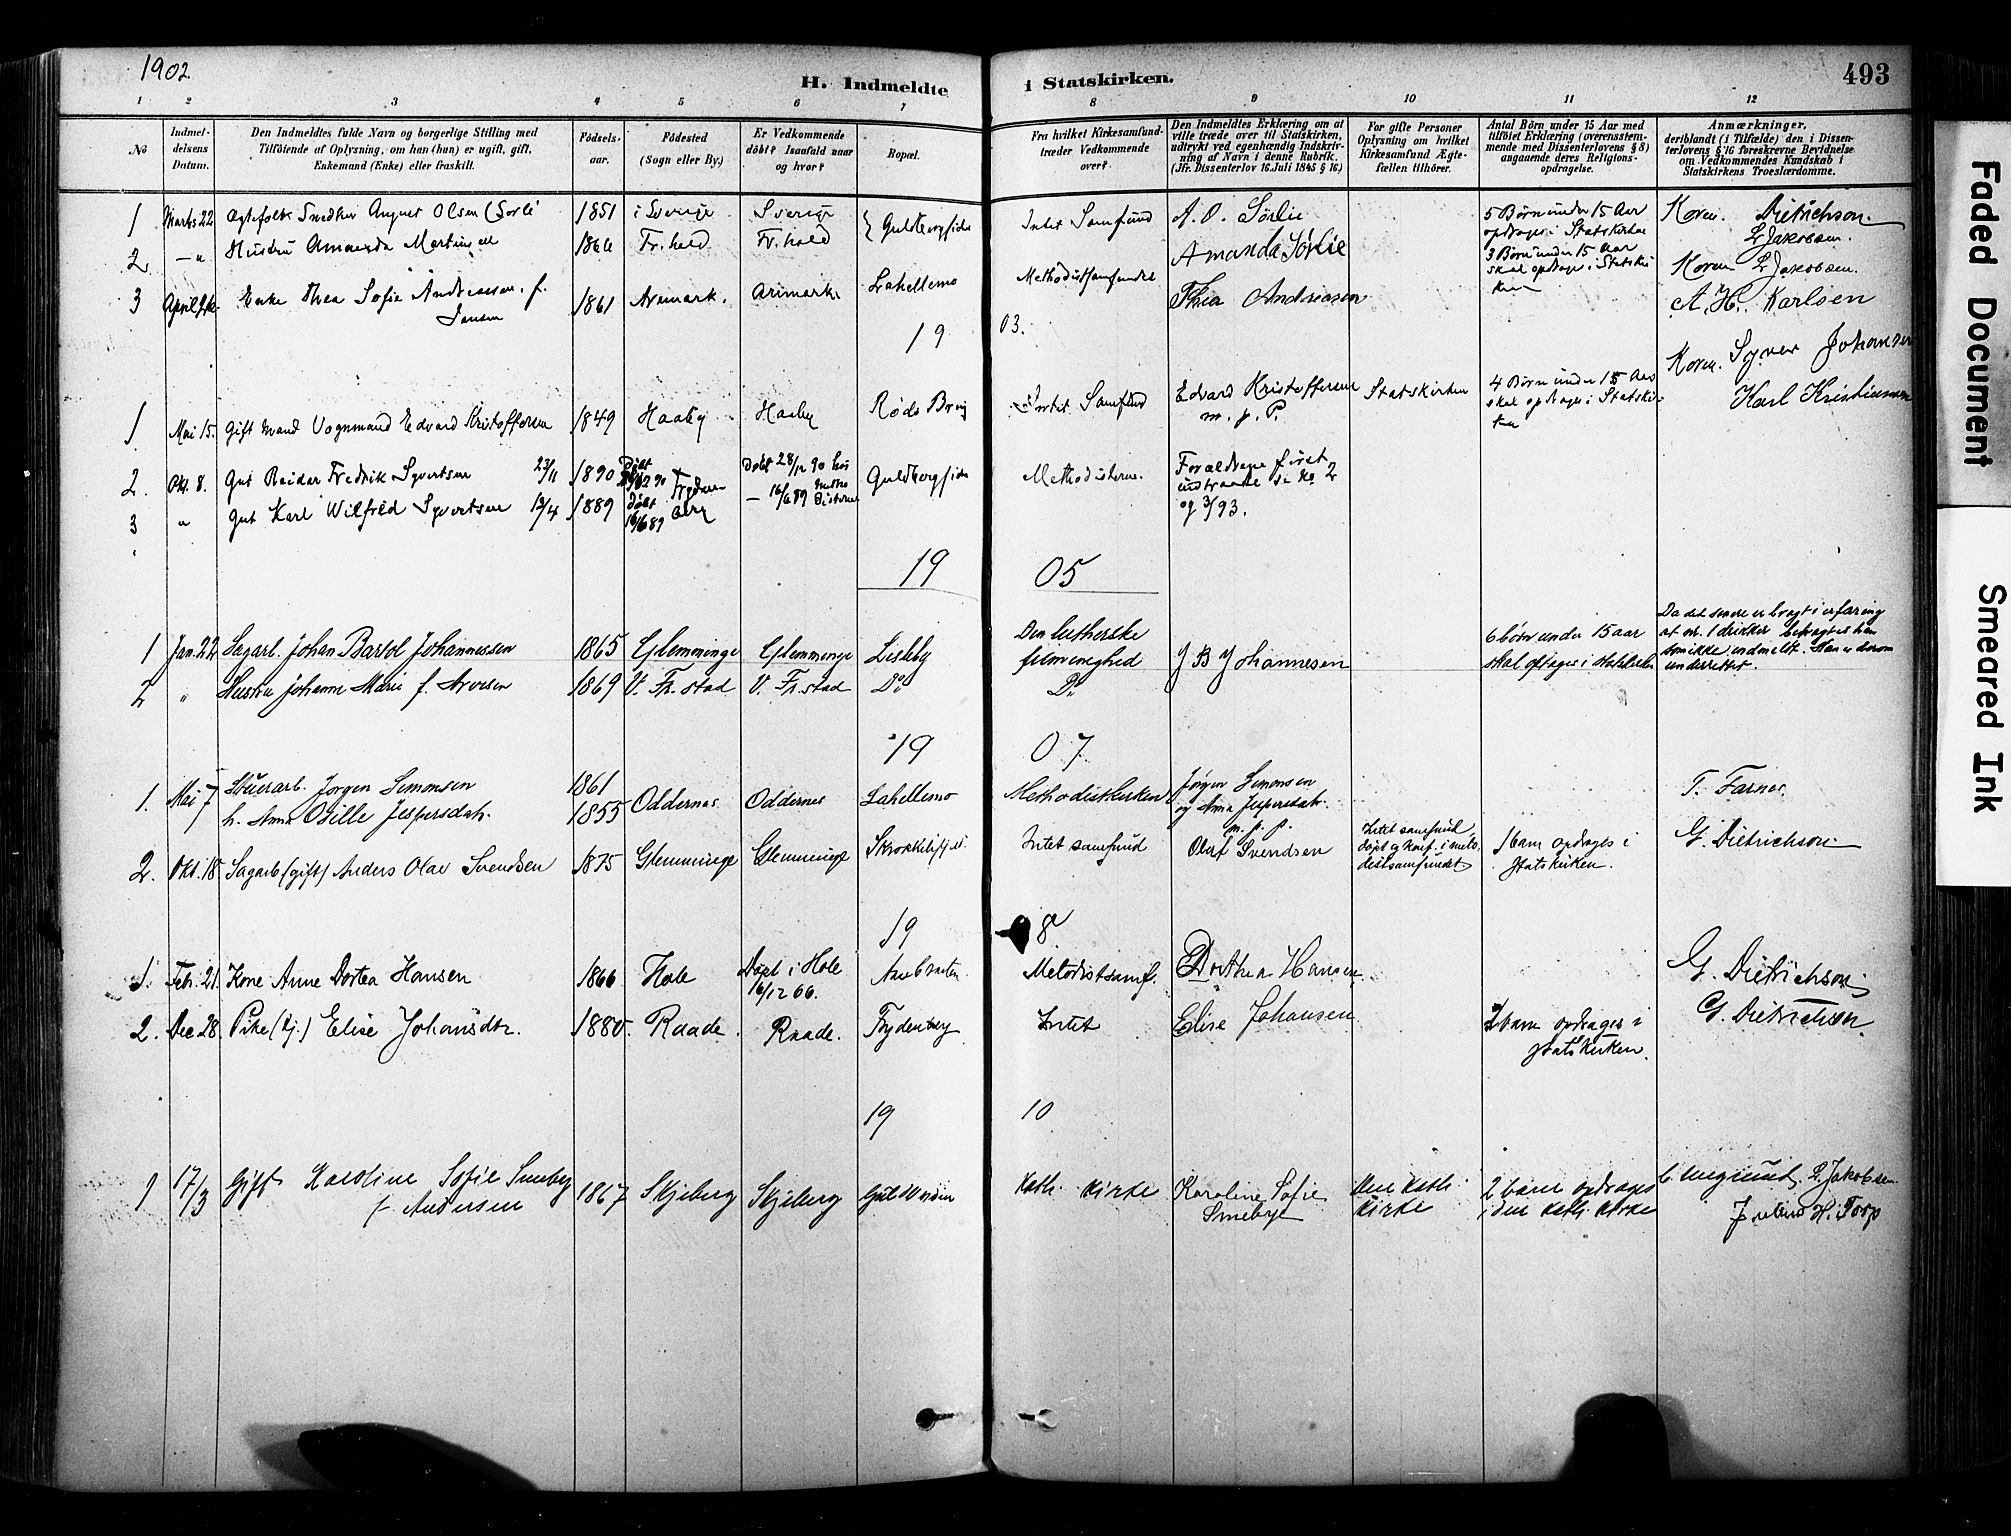 1902
H. Indmeldte i Statskirken.
493
1 2 3 4 5 6 7 8 9 10 11 12
No
Indmeldelsens Datum.
Den Indmeldtes fulde Navn og borgerlige Stilling med Tilföiende af Oplysning, om han (hun) er ugift, gift, Enkemand (Enke) eller fraskilt.
Födselsaar.
Födested (Sogn eller By.)
Er Vedkommende döbt? Isaafald naar og hvor?
Bopæl.
Fra hvilket Kirkesamfund træder Vedkommende over?
Den Indmeldtes Erklæring om at ville træde over til Statskirken, udtrykt ved egenhændig Indskrivning af Navn i denne Rubrik. (Jfr. Dissenterlov 16. Juli 1845 § 16)
For gifte Personer Oplysning om hvilket Kirkesamfund Ægtefællen tilhörer.
Antal Börn under 15 Aar med tilföiet Erklæring (overensstemmende med Dissenterlovens § 8) angaaende deres Religionsopdragelse.
Anmærkninger, deriblandt (i Tilfælde) den i Dissenterlovens § 16 foreskrevne Bevidnelse om Vedkommendes Kundskab i Statskirkens Troeslærdomme.
1 Marts 22 Ægtefolk Snedker August Olsen (Sørli 1851 i Sverige Sverige Guldbergsiden Intet Samfund A. O. Sørlie 5 Børn under 15 Aar opdrages i Statskirken Koren. Dietrichson
L Jakobsen.
2 — " Hustru Amanda 1866 Fr.hald Fr.hald Amanda Sørlie
3 April Enke Thea Sofie Andreasen f. Jansen 1861 Aremark. Aremark Lahellemo Methodistsamfundet Thea Andreasen 3 Børn under 15 Aar skal opdrages i Statskirken Koren L Jakobsen.
A. H. Karlsen
19 03.
1 Mai 15. Gift Mand Vognmand Edvard Kristoffersen 1849 Haaby Haaby Røds Brug Intet Samfund Edvard Kristoffersen m. p. P. Statskirken 4 Børn under 15 Aar skal opdrages i Statskirken Koren. Syver Johansen
Karl Kristiansen
2. Okt. 8. Gut Reidar Fredrik Syvertsen 23/11 1890 Døbt 28/12 90 Døbt 28/12 90 hos Guldbergsiden Methodisterne. Forældrene først indtraadte se No 2 og 3/93.
3 " Gut Karl Wilfred Syvertsen 12/4 1889 døbt 16/6 89 — 16/6 89
19 05
1 Jan. 22 Sagarb. Johan Bartol Johannessen 1865 Glemminge Glemminge Lisleby Den lutherske frimenighed J B Johannesen 6 børn under 15 aar skal optages i statskirken Da det senere er bragt i erfaring at nr. 1 drikker betragtes han som ikke indmeldt. Han er derom underrettet.
2 " Hustru Johanne Marie f. Arvesen 1869 V. Fr.stad V. Fr.stad Do Do
19 07
1. Mai 7 Stuerarb. Jørgen Simonsen 1861
h. Anna Osille Jespersdatr. 1855 Oddernes Oddernes Lahellemo Methodistkirken Jørgen Simonsen og Anna Jespersdatr. m. p. p. T. Farner
2. Okt. 18. Sagarb (gift) Anders Olav Svendsen 1875 Glemminge Glemminge Intet samfund Olaf Svendsen Intet samfund, døpt og konf. i metodistsamfundet 1 barn opdrages i statskirken. G. Dietrichson
19 8
1. Febr. 21. Kone Anne Dortea Hansen 1866 Hole Døpt i Hole 16/12 66. Metodistsamf. Dorthea Hansen G. Dietrichson
2. Dec 28. Pike (tj.) Elise Johansdtr. 1880. Raade. Raade. Frydenberg Intet Elise Johansen 1 barn opdrages i statskirken. G. Dietrichson
19 10
1 17/3 Gift Karoline Sofie Smeby f. Andersen 1867 Skjeberg Skjeberg Kath. kirke Karoline Sofie Smebye den kath. kirke 2 barn opdrages i den kath. kirke L Jakobsen
Julius H. Torp
Faded Document
Smeared Ink